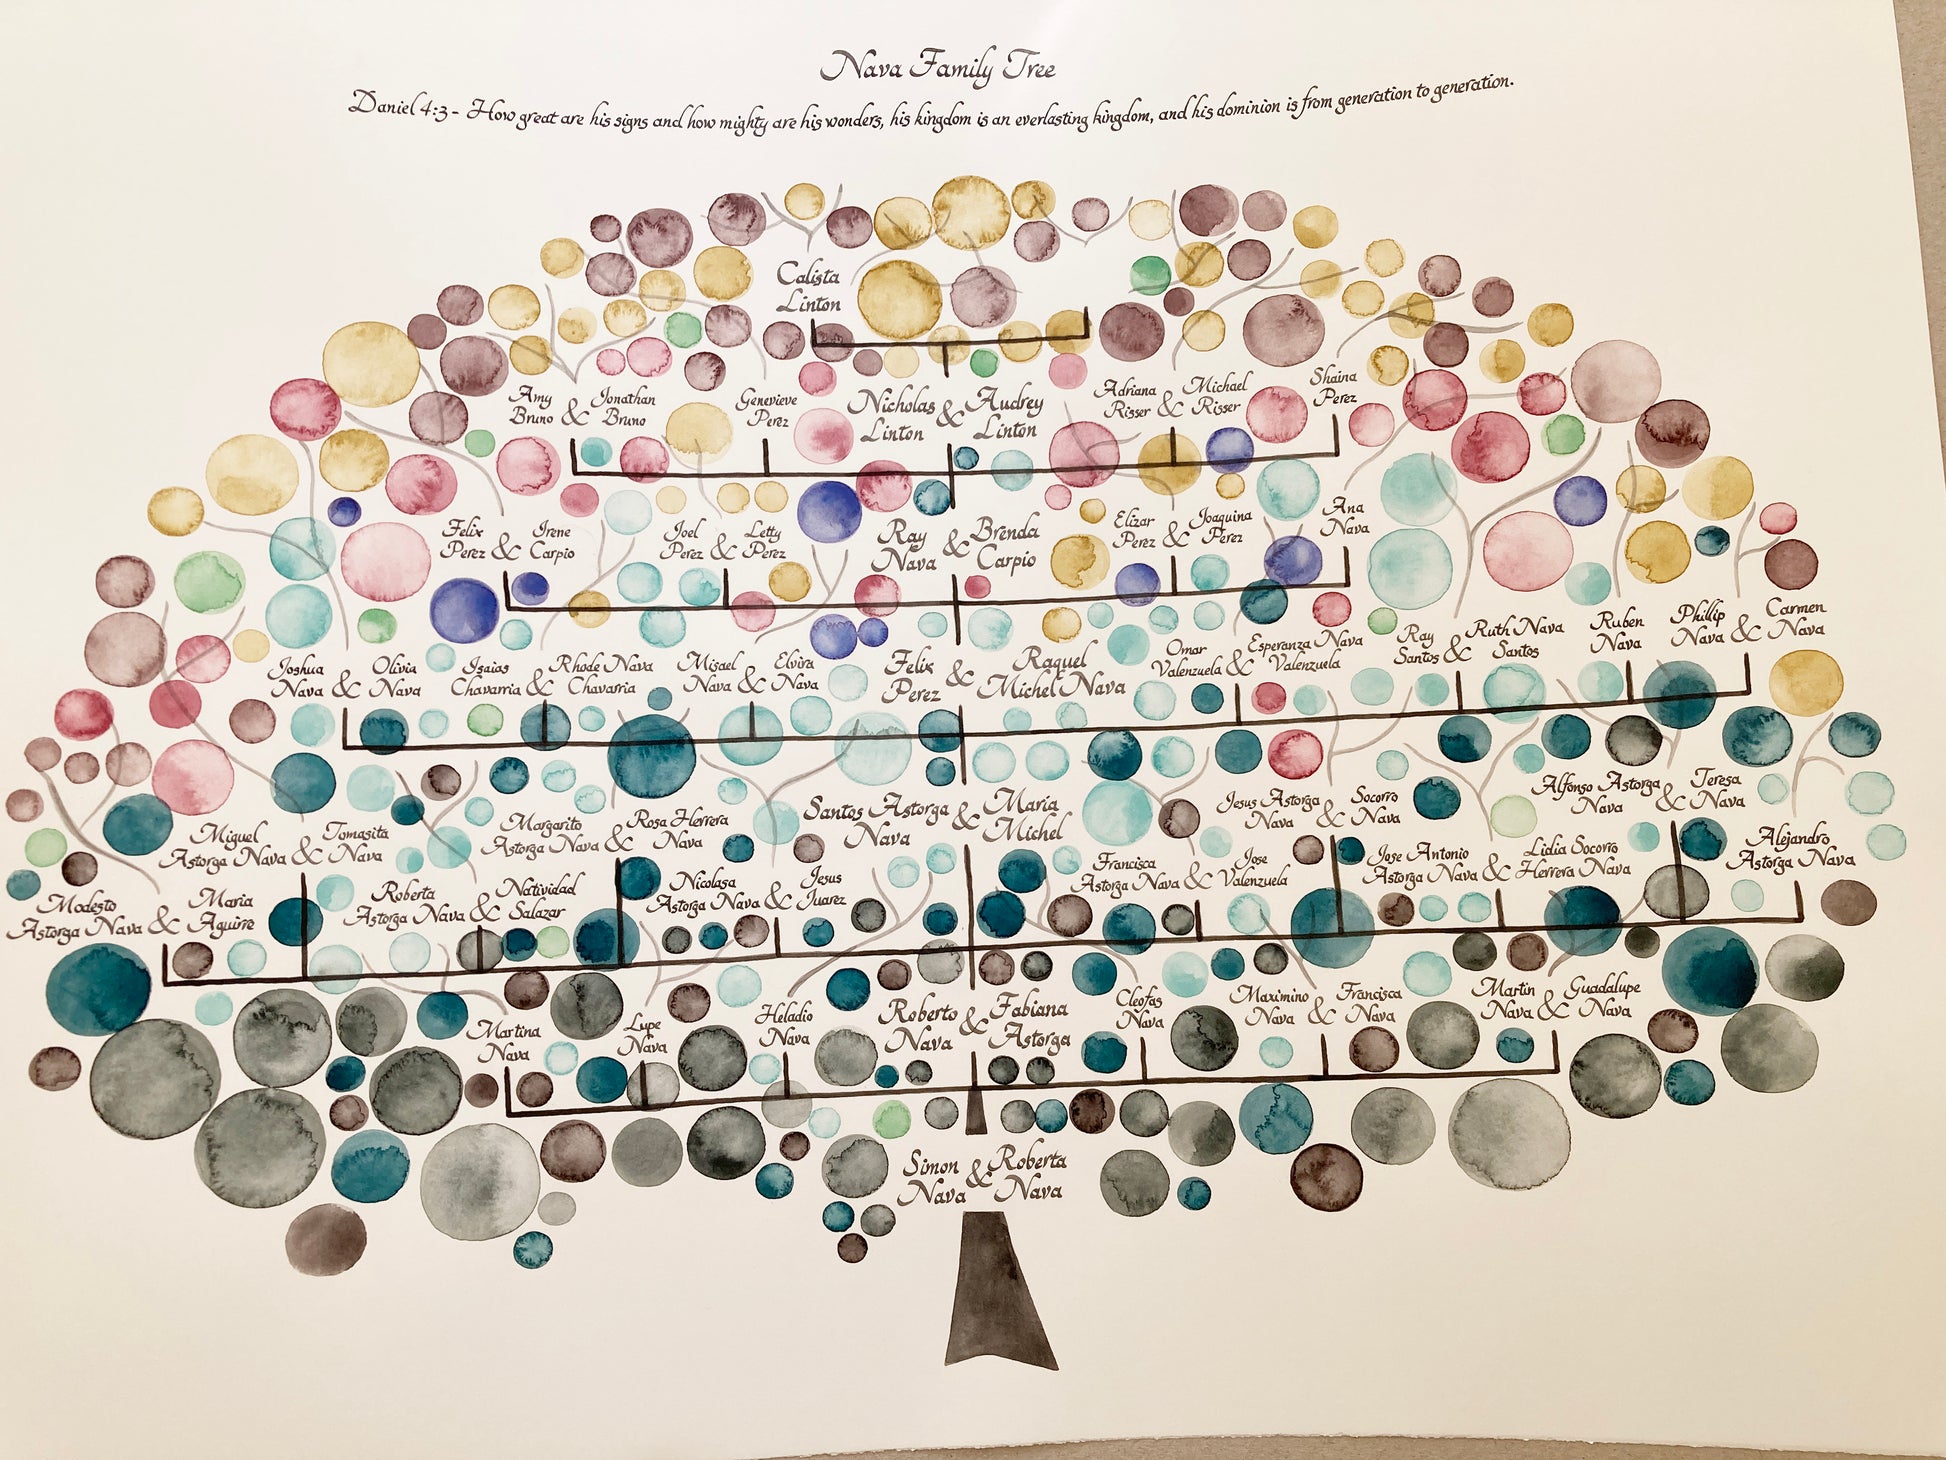 Nava Family Tree
Daniel 4:3 - How great are his signs and how mighty are his wonders, his kingdom is an everlasting kingdom, and his dominion is from generation to generation.
Calista
Linton
Amy
Bruno & Jonathan
Bruno
Genevieve
Perez
Nicholas
Linton & Audrey
Linton
Adriana
Risser & Michael
Risser
Shaina
Perez
Felix
Perez & Irene
Carpio
Joel
Perez & Letty
Perez
Ray
Nava & Brenda
Carpio
Elizar
Perez & Joaquina
Perez
Ana
Nava
Joshua
Nava & Olivia
Nava
Isaias
Chavarria & Rhode Nava
Chavarria
Misael
Nava & Elvira
Nava
Felix
Perez & Raquel
Michel Nava
Omar
Valenzuela & Esperanza Nava
Valenzuela
Ray
Santos & Ruth Nava
Santos
Ruben
Nava
Phillip
Nava & Carmen
Nava
Modesto
Astorga Nava & Maria
Aguirre
Miguel
Astorga Nava & Tomasita
Nava
Roberta
Astorga Nava & Natividad
Salazar
Margarito
Astorga Nava & Rosa Herrera
Nava
Nicolasa
Astorga Nava & Jesus
Juarez
Santos Astorga
Nava & Maria
Michel
Francisca
Astorga Nava & Jose
Valenzuela
Jesus Astorga
Nava & Socorro
Nava
Jose Antonio
Astorga Nava & Lidia Socorro
Herrera Nava
Alfonso Astorga
Nava & Teresa
Nava
Alejandro
Astorga Nava
Martina
Nava
Lupe
Nava
Heladio
Nava
Roberto
Nava & Fabiana
Astorga
Cleofas
Nava
Maximino
Nava & Francisca
Nava
Martin
Nava & Guadalupe
Nava
Simon
Nava & Roberta
Nava